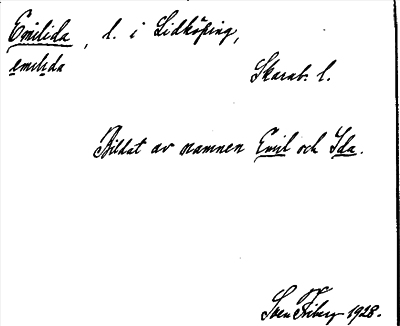 Emilida, l. i Lidköping,
emilida
Skarab. l.
Bildat av namnen Emil och Ida.
Sven Friberg 1928.